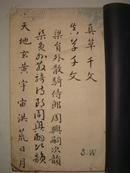 真草千文
真草千文
梁員外散騎侍郎周興嗣次韻
梁員外散騎侍郎周興嗣次韻
天地玄黃宇宙洪荒日月